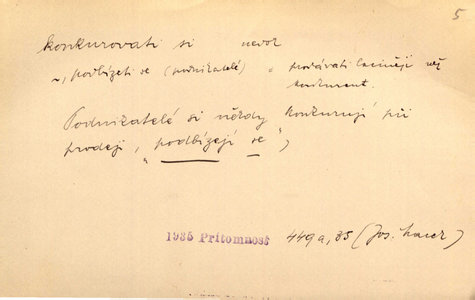 5
konkurovati si nedok
~, podbízeti se (podnikatelé) = prodávati laciněji než
konkurent.
Podnikatelé si někdy konkurují při
prodeji, „podbízejí se“)
1935 Přítomnost 449a, 35 (Jos. Lacer)